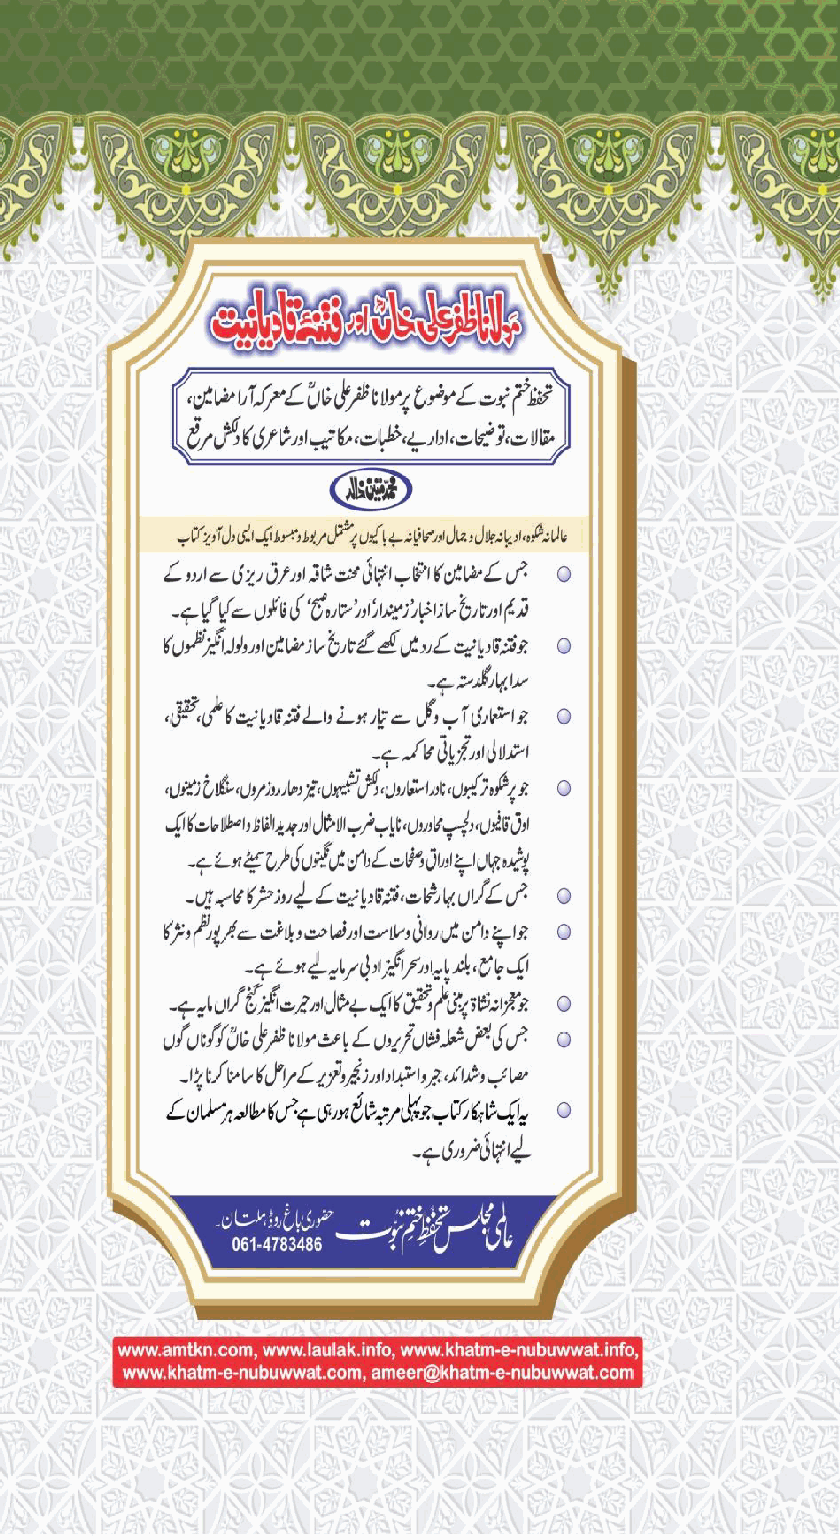 مولانا ظفر علی خاںؒ اور فتنۂ قادیانیت
تحفظ ختم نبوت کے موضوع پر مولانا ظفر علی خاںؒ کے معرکہ آرا مضامین،
مقالات، توضیحات، اداریے، خطبات، مکاتیب اور شاعری کا دلکش مرقع
محمد متین خالد
عالمانہ شکوہ، ادیبانہ جلال و جمال اور صحافیانہ بے باکیوں پر مشتمل مربوط و مبسوط ایک ایسی دل آویز کتاب
جس کے مضامین کا انتخاب انتہائی محنت شاقہ اور عرق ریزی سے اردو کے
قدیم اور تاریخ ساز اخبار ’زمیندار‘ اور ’ستارہ صبح‘ کی فائلوں سے کیا گیا ہے۔
جو فتنہ قادیانیت کے رد میں لکھے گئے تاریخ ساز مضامین اور ولولہ انگیز نظموں کا
سدا بہار گلدستہ ہے۔
جو استعماری آب و گل سے تیار ہونے والے فتنہ قادیانیت کا علمی، تحقیقی،
استدلالی اور تجزیاتی محاکمہ ہے۔
جو پرشکوہ ترکیبوں، نادر استعاروں، دلکش تشبیہوں، تیز دھار روزمروں، سنگلاخ زمینوں،
اوق قافیوں، دلچسپ محاوروں، نایاب ضرب الامثال اور جدید الفاظ و اصطلاحات کا ایک
پوشیدہ جہاں اپنے اوراق و صفحات کے دامن میں نگینوں کی طرح سمیٹے ہوئے ہے۔
جس کے گراں بہا رشحات، فتنہ قادیانیت کے لیے روز حشر کا محاسبہ ہیں۔
جو اپنے دامن میں روانی و سلاست اور فصاحت و بلاغت سے بھرپور نظم و نثر کا
ایک جامع، بلند پایہ اور سحر انگیز ادبی سرمایہ لیے ہوئے ہے۔
جو معجزانہ نشاۃ پر مبنی علم و تحقیق کا ایک بے مثال اور حیرت انگیز گنج گراں مایہ ہے۔
جس کی بعض شعلہ فشاں تحریروں کے باعث مولانا ظفر علی خاںؒ کو گوناں گوں
مصائب و شدائد، جبر و استبداد اور زنجیر و تعزیر کے مراحل کا سامنا کرنا پڑا۔
یہ ایک شاہکار کتاب جو پہلی مرتبہ شائع ہو رہی ہے جس کا مطالعہ ہر مسلمان کے
لیے انتہائی ضروری ہے۔
عالمی مجلس تحفظ ختم نبوت حضوری باغ روڈ، ملتان۔
061-4783486
www.amtkn.com, www.laulak.info, www.khatm-e-nubuwwat.info,
www.khatm-e-nubuwwat.com, ameer@khatm-e-nubuwwat.com